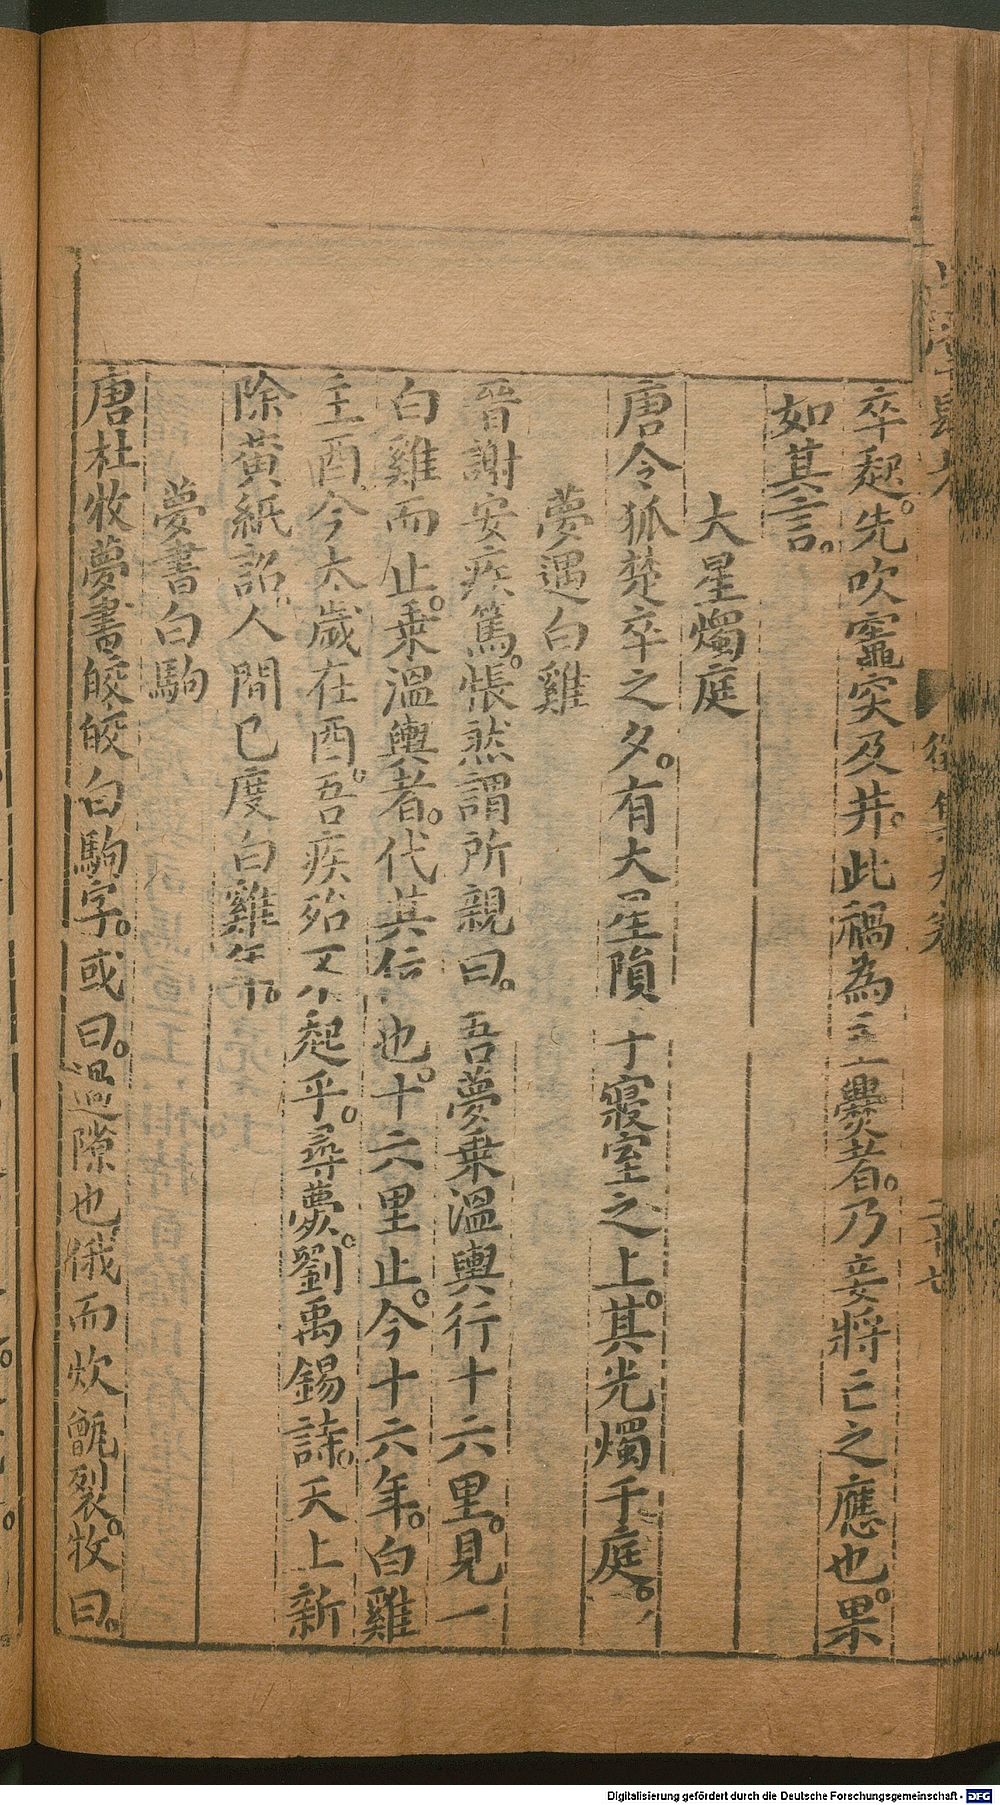 卒起。先吹竈突及井。此禍為主爨者。乃妾將亡之應也。果
如其言。
大星燭庭
唐令狐楚卒之夕。有大星隕于寢室之上。其光燭于庭。
夢遇白雞
晉謝安疾篤。悵然謂所親曰。吾夢乗溫輿行十六里。見一
白雞而止。乗溫輿者。代其位也。十六里止。今十六年。白雞
主酉。今太歲在酉。吾疾殆不起乎。尋薨。劉禹錫詩。天上新
除黃紙詔。人間已度白雞年。
夢書白駒
唐杜牧夢書皎皎白駒字。或曰。過隙也。俄而炊甑裂。牧曰。
二十七
Digitalisierung gefördert durch die Deutsche Forschungsgemeinschaft - DFG